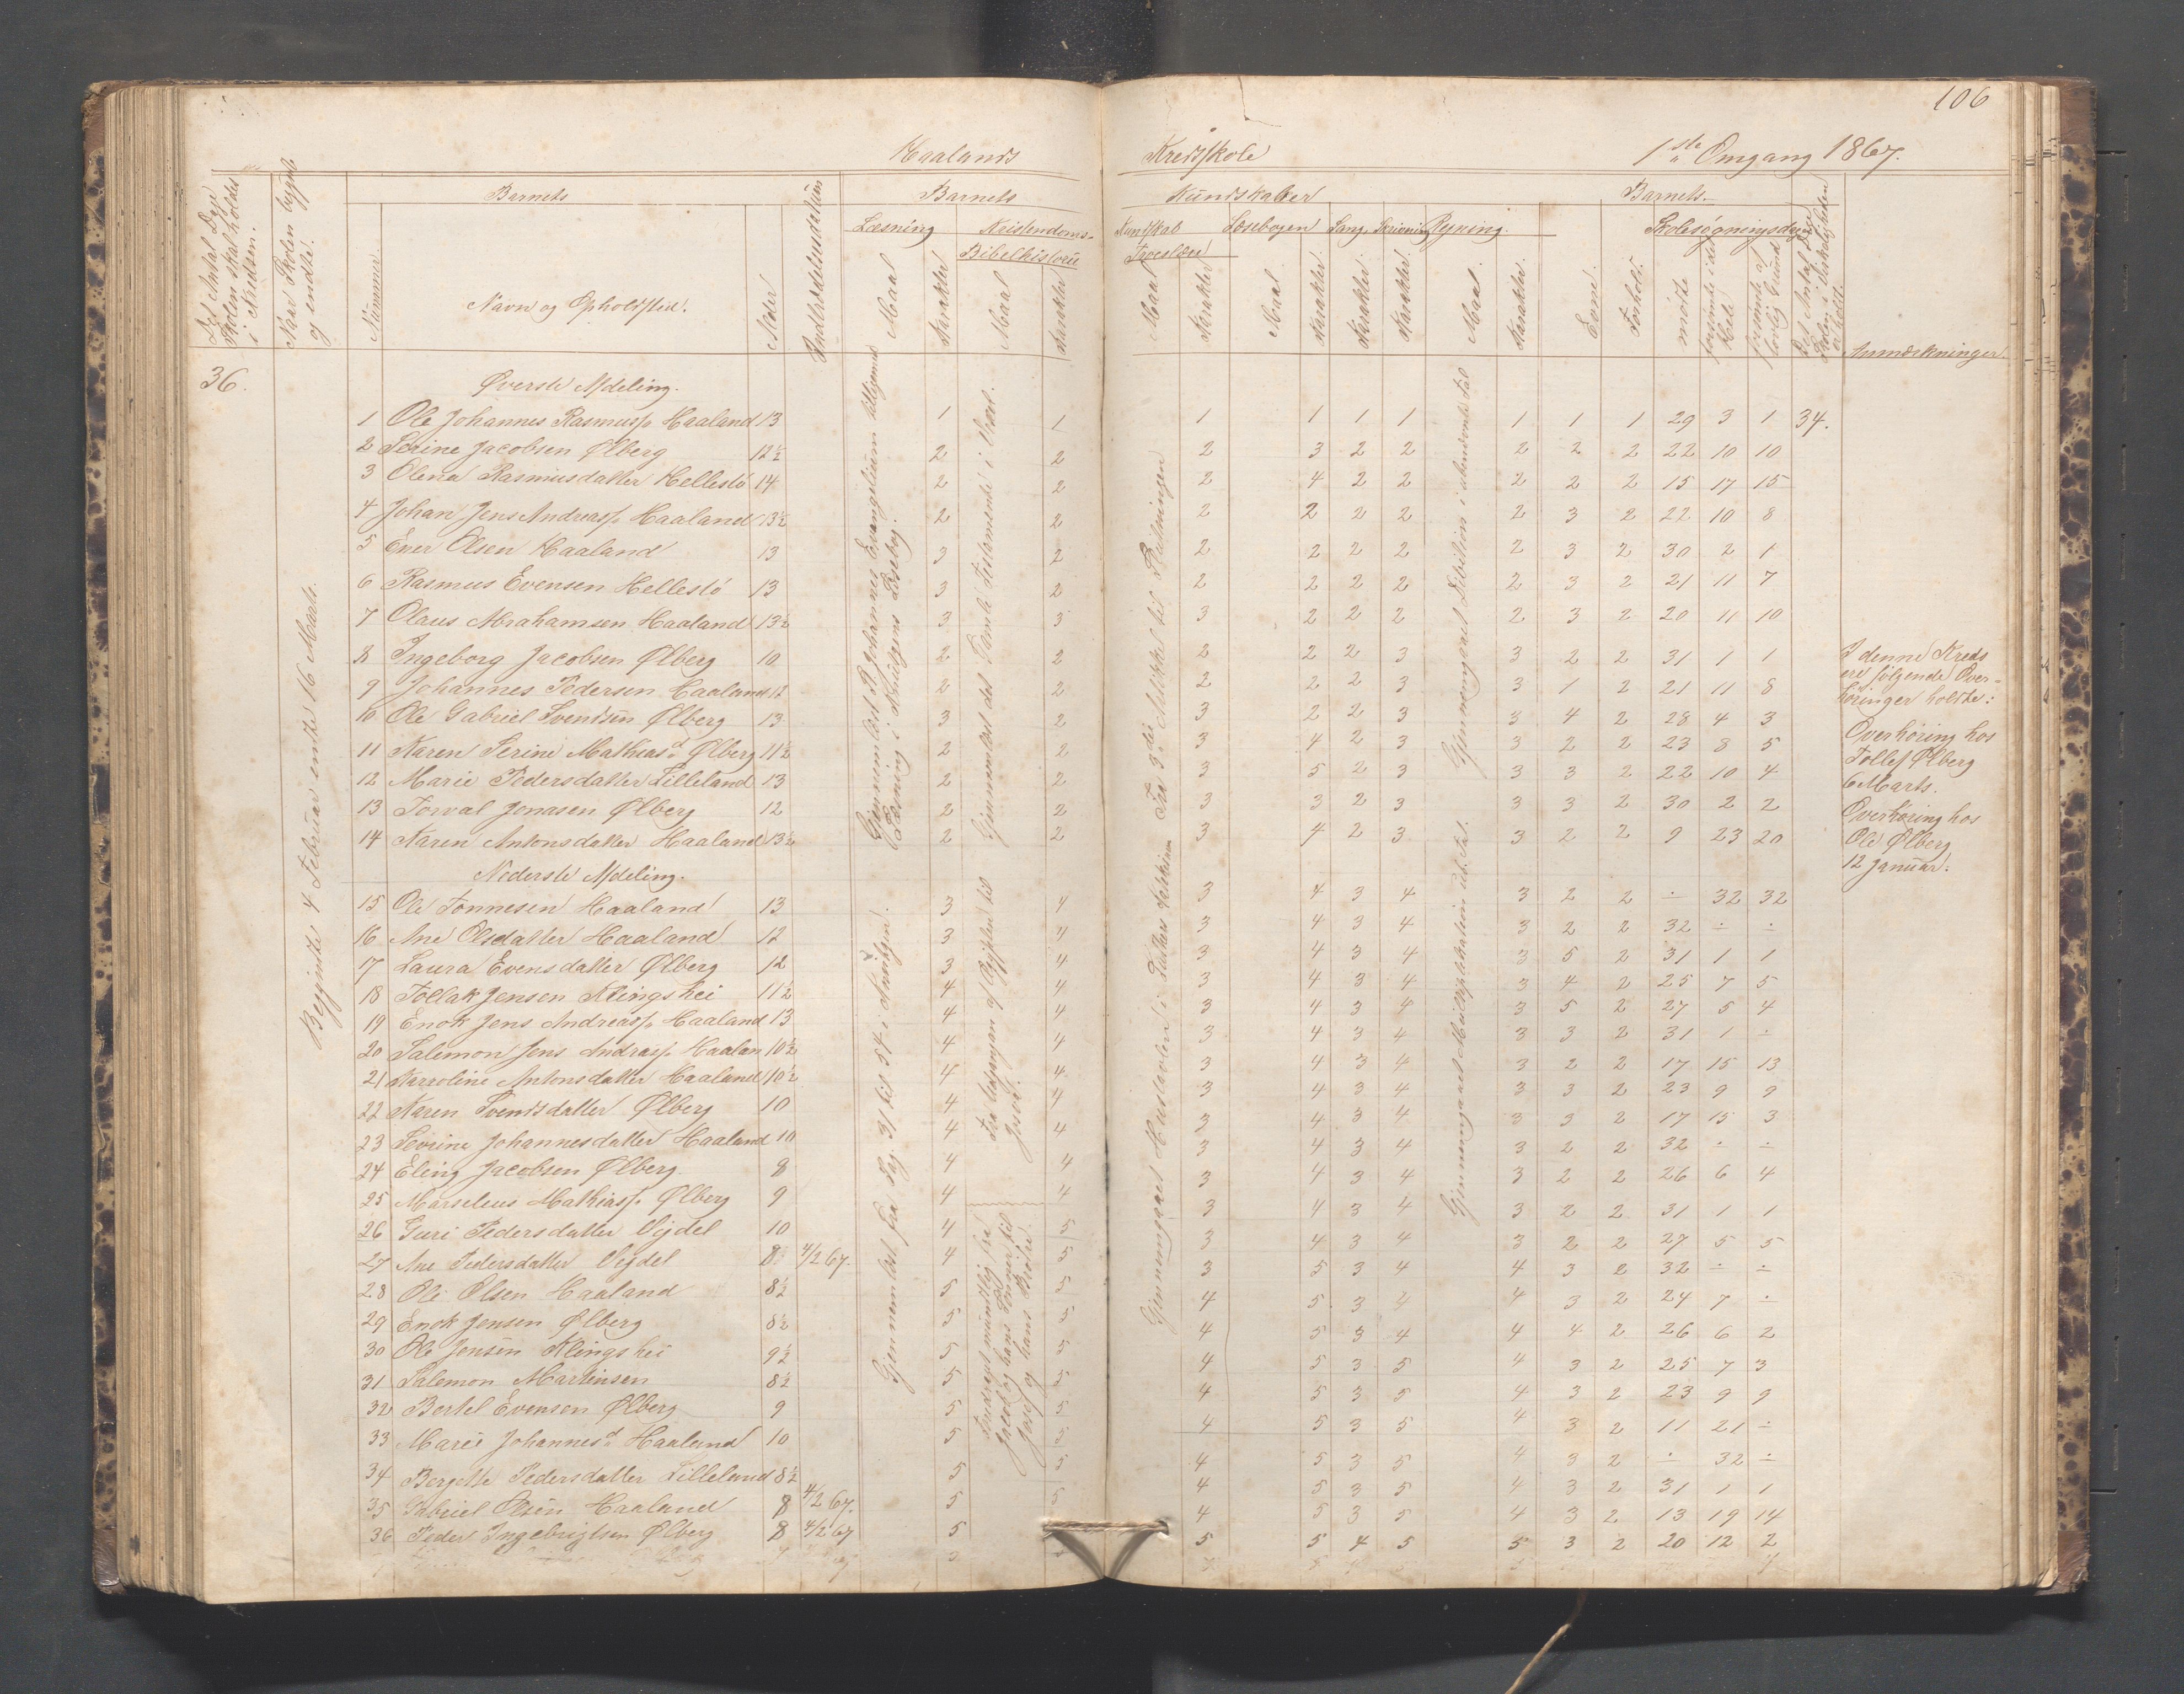 106
Haalands Kredsskole 1ste Omgang 1867.
Det Antal Dage Skolen skal holdes i Kredsen.
Naar Skolen begynte og endte.
Barnets
Nummer
Navn og Opholdssted.
Alder
Indtrædelsesdatum
Barnets Kundskaber
Læsning
Maal
Karakter
Kristendoms- Kundskab
Bibelhistorie
Maal
Karakter
Troeslære
Maal
Karakter
Læsebogen
Maal
Karakter
Sang
Karakter
Skrivning
Karakter
Regning.
Maal
Karakter
Barnets
Evne
Forhold.
Skolesøgningsdage
mødte
forsømte i det Hele
forsømte af lovlig Grund
Det Antal Dage Skolen i Virkeligheden er holdt.
Anmærkninger
36.
Begyndte 4 Februar endte 16 Marts.
Øverste Afdeling.
1 Ole Johannes Rasmuss. Haaland 13 1 1 1 1 1 1 1 1 1 29 3 1 34.
2 Serine Jacobsen Ølberg 12½ 2 2 2 3 2 2 2 2 2 22 10 10
3 Olena Rasmusdatter Hellestö 14 2 2 2 4 2 2 2 2 2 15 17 15
4 Johan Jens Andreass. Haaland 13½ 2 2 2 2 2 2 2 3 2 22 10 8
5 Ener Olsen Haaland 13 3 2 2 2 2 2 2 3 2 30 2 1
6 Rasmus Evensen Hellestö 13 3 2 2 2 2 2 2 3 2 21 11 7
7 Olaus Abrahamsen Haaland 13½ 3 3 3 2 2 2 2 3 2 20 11 10
8 Ingeborg Jacobsen Ølberg 10 2 2 2 2 2 3 3 2 2 31 1 1
9 Johannes Pedersen Haaland 12 2 2 2 2 2 3 3 1 2 21 11 8
10 Ole Gabriel Svendsen Ølberg 13 3 2 3 2 2 3 3 4 2 28 4 3
11 Karen Serine Mathiasd Ølberg 11½ 2 2 3 4 2 3 3 2 2 23 8 5
12 Marie Pedersdatter Lilleland 13 2 2 3 5 2 3 3 3 2 22 10 4
13 Torval Jonasen Ølberg 12 2 2 3 3 2 3 3 3 2 30 2 2
14 Karen Antonsdatter Haaland 13½ 2 2 3 4 2 3 3 2 2 9 23 20
Nederste Afdeling.
15 Ole Tønnesen Haaland 13 3 4 3 4 3 4 3 2 2 ÷ 32 32
16 Ane Olsdatter Haaland 12 3 4 3 4 3 4 3 2 2 32 ÷ ÷
17 Laura Evensdatter Ølberg 12 3 4 3 4 3 4 3 5 2 31 1 1
18 Tollak Jensen Klingshei 11½ 4 4 3 4 3 4 3 4 2 25 7 5
19 Enok Jens Andreass. Haaland 13 4 4 3 4 3 4 3 5 2 27 5 4
20 Salemon Jens Andreass. Haalan 10½ 4 4 3 4 3 4 3 3 2 31 1 ÷
21 Karroline Antonsdatter Haaland 10½ 4 4 3 4 3 4 3 2 2 17 15 13
22 Karen Svendsdatter Ølberg 10 4 4 3 4 3 4 3 3 2 23 9 9
23 Severine Johannesdatter Haaland 10 4 4 3 4 3 4 3 3 2 17 15 3
24 Eling Jacobsen Ølberg 8 4 4 3 4 3 4 3 2 2 32 ÷ ÷
25 Marselius Mathiass. Ølberg 9 4 4 3 4 3 4 3 2 2 26 6 4
26 Guri Pedersdatter Vigdel 10 4 5 3 4 3 4 3 2 2 31 1 1
27 Ane Pedersdatter Vigdel 8 4/2 67. 4 5 3 4 3 4 3 2 2 27 5 5
28 Ole Olsen Haaland 8½ 5 5 3 5 3 4 4 3 2 32 ÷ ÷
29 Enok Jensen Ølberg 8½ 5 5 4 5 3 4 4 3 2 24 7 ÷
30 Ole Jensen Klingshei 9½ 5 5 4 5 3 4 4 4 2 26 6 2
31 Salemon Martinsen 8½ 5 5 4 5 3 5 4 3 2 25 7 3
32 Bertel Evensen Ølberg 9 5 5 4 5 3 5 4 3 2 23 9 9
33 Marie Johannesd Haaland 10 5 5 4 5 3 5 4 3 2 11 21 ÷
34 Berjette Pedersdatter Lilleland 8½ 5 5 4 5 3 5 4 3 2 ÷ 32 ÷
35 Gabriel Olsen Haaland 8 4/2 67. 5 5 4 5 3 5 4 3 2 31 1 1
36 Peder Ingebrigtsen Ølberg 8 4/2 67 5 4 5 3 5 4 3 2 13 19 14
5 5 4 5 5 3 2 20 12 2
Gjennemlæst St. Johannes Evangelium tilligemed Læsning i Læsebog.
Gjennemlæst det Gamle Testamente i Udtog.
Gjennemlæst fra Pag. 31 til 54 i
Fra Udgangen af Ægypten til Josva.
Foredraget mundtlig fra Jacob og hans Sønner til Josef og hans Brødre.
Fra 3die Artikkel til Slutningen
Gjennemgaaet Hustavlen i Luthers Katekism
Gjennemgaaet Division i ubenævnte Tal
Gjennemgaaet Multiplikation ub. Tal.
I denne Kreds
ere følgende Over-
höringer holdte:
Overhöring hos
Tollef Ølberg
6 Marts.
Overhöring hos
Ole Ølberg
12 Januar.